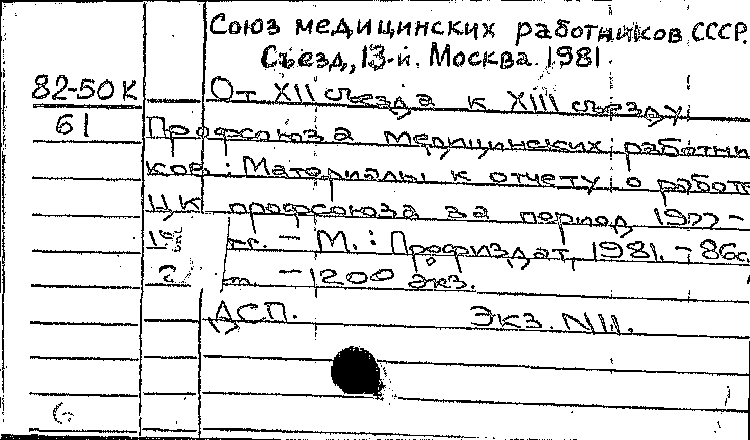 Союз медицинских работников СССР.
Съезд, 13-й. Москва. 1981.
82-50К От XII съезда к XIII съезду
61 Профсоюза медицинских работни
ков: Материалы к отчету о работе
ЦК профсоюза за период 1977-
19 гг. - М.: Профиздат, 1981. - 86с
- 1200 экз.
ДСП. Экз. N 11.